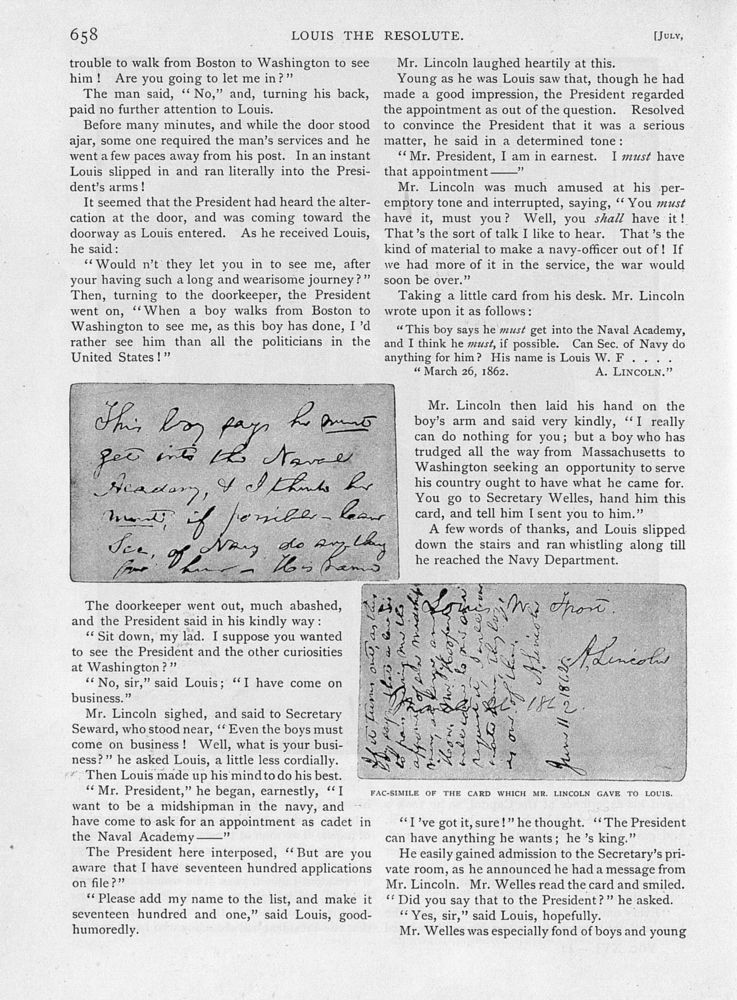 658
LOUIS THE RESOLUTE.
[JULY,
trouble to walk from Boston to Washington to see
him ! Are you going to let me in ? "
The man said, " No," and, turning his back,
paid no further attention to Louis.
Before many minutes, and while the door stood
ajar, some one required the man's services and he
went a few paces away from his post. In an instant
Louis slipped in and ran literally into the Presi-
dent's arms !
It seemed that the President had heard the alter-
cation at the door, and was coming toward the
doorway as Louis entered. As he received Louis,
he said :
" Would n't they let you in to see me, after
your having such a long and wearisome journey ? "
Then, turning to the doorkeeper, the President
went on, " When a boy walks from Boston to
Washington to see me, as this boy has done, I 'd
rather see him than all the politicians in the
United States ! "
This boy says he must
get into the Naval
Academy, & I think he
must, if possible - Can
Sec. of Navy do anything
for him - His name
The doorkeeper went out, much abashed,
and the President said in his kindly way :
" Sit down, my lad. I suppose you wanted
to see the President and the other curiosities
at Washington ? "
" No, sir," said Louis ; " I have come on
business."
Mr. Lincoln sighed, and said to Secretary
Seward, who stood near, " Even the boys must
come on business ! Well, what is your busi-
ness ? " he asked Louis, a little less cordially.
Then Louis made up his mind to do his best.
" Mr. President," he began, earnestly, " I
want to be a midshipman in the navy, and
have come to ask for an appointment as cadet in
the Naval Academy——"
The President here interposed, " But are you
aware that I have seventeen hundred applications
on file ? "
" Please add my name to the list, and make it
seventeen hundred and one," said Louis, good-
humoredly.
Mr. Lincoln laughed heartily at this.
Young as he was Louis saw that, though he had
made a good impression, the President regarded
the appointment as out of the question. Resolved
to convince the President that it was a serious
matter, he said in a determined tone :
" Mr. President, I am in earnest. I must have
that appointment——"
Mr. Lincoln was much amused at his per-
emptory tone and interrupted, saying, " You must
have it, must you ? Well, you shall have it !
That 's the sort of talk I like to hear. That 's the
kind of material to make a navy-officer out of ! If
we had more of it in the service, the war would
soon be over."
Taking a little card from his desk. Mr. Lincoln
wrote upon it as follows :
" This boy says he must get into the Naval Academy,
and I think he must, if possible. Can Sec. of Navy do
anything for him ? His name is Louis W. F . . . .
" March 26, 1862. A. LINCOLN."
Mr. Lincoln then laid his hand on the
boy's arm and said very kindly, " I really
can do nothing for you ; but a boy who has
trudged all the way from Massachusetts to
Washington seeking an opportunity to serve
his country ought to have what he came for.
You go to Secretary Welles, hand him this
card, and tell him I sent you to him."
A few words of thanks, and Louis slipped
down the stairs and ran whistling along till
he reached the Navy Department.
Louis W.
A. Lincoln
1862
A. Lincoln
June 11, 1862
FAC-SIMILE OF THE CARD WHICH MR. LINCOLN GAVE TO LOUIS.
" I 've got it, sure ! " he thought. " The President
can have anything he wants ; he 's king."
He easily gained admission to the Secretary's pri-
vate room, as he announced he had a message from
Mr. Lincoln. Mr. Welles read the card and smiled.
" Did you say that to the President ? " he asked.
" Yes, sir," said Louis, hopefully.
Mr. Welles was especially fond of boys and young